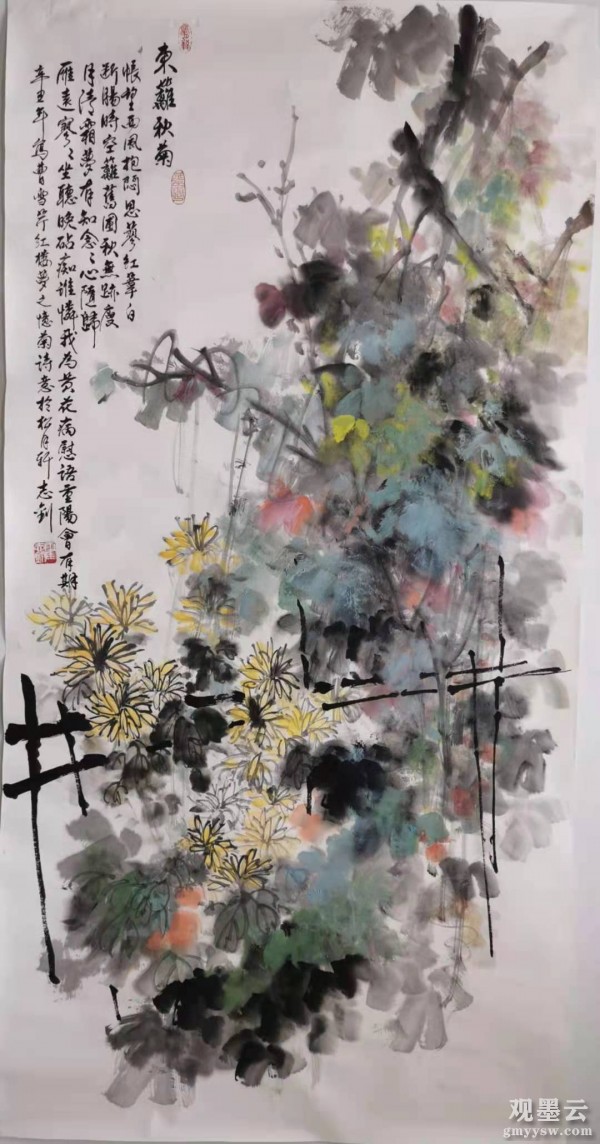 東蘺秋菊
悵望西風抱悶思蓼紅葦白
斷腸時空蘺舊圃秋無跡瘦
月清霜夢有知念々心隨歸
雁遠寥々坐聽晚砧痴誰憐我為黃花病慰語重陽會有期
辛丑年寫曹雪芹紅樓夢之憶菊詩意於松月軒志釗
观墨云
gmyysw.com